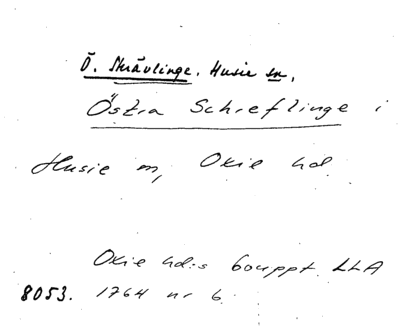 Ö. Skrävlinge. Husie sn.
Östra Schreflinge i
Husie sn, Oxie hd.
Oxie hd:s bouppt. LLA
8053. 1764 nr 6.